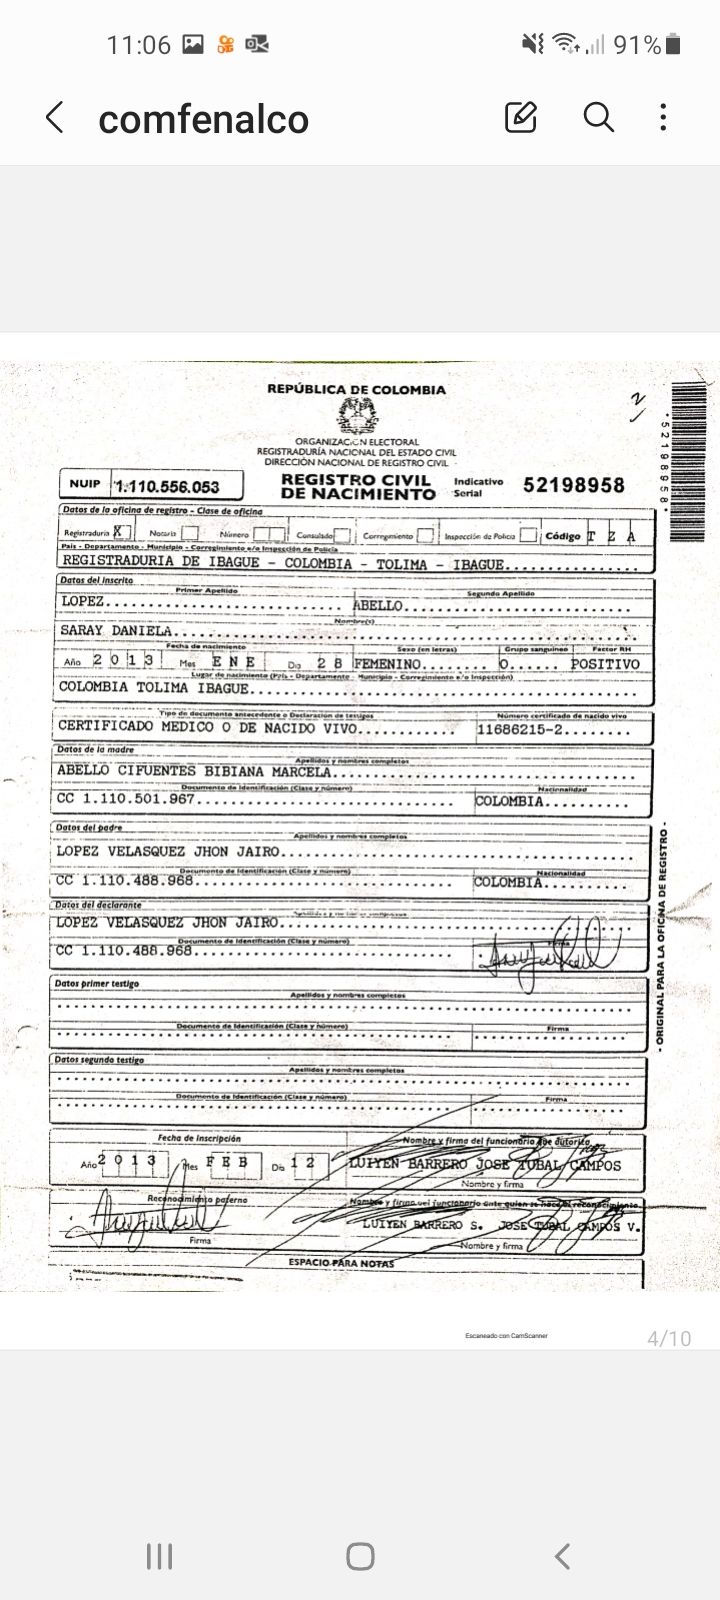 11:06 91%
comfenalco
REPÚBLICA DE COLOMBIA
ORGANIZACIÓN ELECTORAL
REGISTRADURÍA NACIONAL DEL ESTADO CIVIL
DIRECCIÓN NACIONAL DE REGISTRO CIVIL
NUIP 1.110.556.053
REGISTRO CIVIL DE NACIMIENTO
Indicativo Serial 52198958
*52198958*
Datos de la oficina de registro - Clase de oficina
Registraduría X Notaría Número Consulado Corregimiento Inspección de Policía Código T Z A
País - Departamento - Municipio - Corregimiento e/o Inspección de Policía
REGISTRADURIA DE IBAGUE - COLOMBIA - TOLIMA - IBAGUE
Datos del inscrito
Primer Apellido Segundo Apellido
LOPEZ ABELLO
Nombre(s)
SARAY DANIELA
Fecha de nacimiento Sexo (en letras) Grupo sanguíneo Factor RH
Año 2013 Mes ENE Día 28 FEMENINO O POSITIVO
Lugar de nacimiento (País - Departamento - Municipio - Corregimiento e/o Inspección)
COLOMBIA TOLIMA IBAGUE
Tipo de documento antecedente o Declaración de testigos Número certificado de nacido vivo
CERTIFICADO MEDICO O DE NACIDO VIVO 11686215-2
Datos de la madre
Apellidos y nombres completos
ABELLO CIFUENTES BIBIANA MARCELA
Documento de Identificación (Clase y número) Nacionalidad
CC 1.110.501.967 COLOMBIA
Datos del padre
Apellidos y nombres completos
LOPEZ VELASQUEZ JHON JAIRO
Documento de Identificación (Clase y número) Nacionalidad
CC 1.110.488.968 COLOMBIA
Datos del declarante
LOPEZ VELASQUEZ JHON JAIRO
Documento de Identificación (Clase y número) Firma
CC 1.110.488.968
Datos primer testigo
Apellidos y nombres completos
Documento de Identificación (Clase y número) Firma
Datos segundo testigo
Apellidos y nombres completos
Documento de Identificación (Clase y número) Firma
- ORIGINAL PARA LA OFICINA DE REGISTRO -
Fecha de Inscripción Nombre y firma del funcionario que autoriza
Año 2013 Mes FEB Día 12 LUIYEN BARRERO JOSE TUBAL CAMPOS
Nombre y firma
Reconocimiento paterno Nombre y firma del funcionario ante quien se hace el reconocimiento
LUIYEN BARRERO S. JOSE TUBAL CAMPOS V.
Firma Nombre y firma
ESPACIO PARA NOTAS
Escaneado con CamScanner
4/10